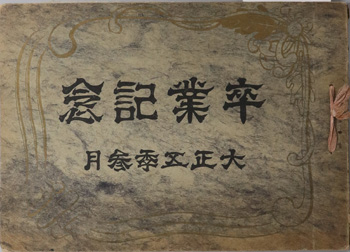 卒業記念
大正五秊参月